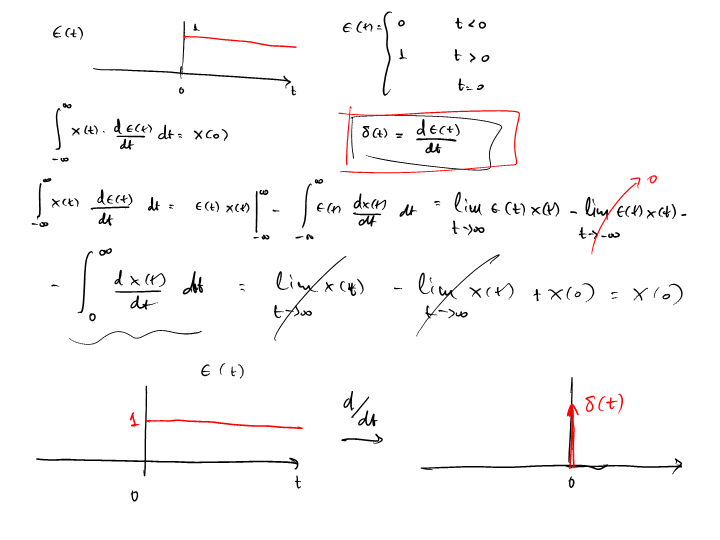 ϵ(t) 1 0 t
ϵ(t) = { 0 t<0
1 t>0
t=0
∫_{-∞}^{∞} x(t) · dϵ(t)/dt dt = x(0)
δ(t) = dϵ(t)/dt
∫_{-∞}^{∞} x(t) dϵ(t)/dt dt = ϵ(t) x(t) |_{-∞}^{∞} - ∫_{-∞}^{∞} ϵ(t) dx(t)/dt dt = lim_{t→∞} ϵ(t) x(t) - lim_{t→-∞} ϵ(t) x(t) - 0
- ∫_{0}^{∞} dx(t)/dt dt = lim_{t→∞} x(t) - lim_{t→∞} x(t) + x(0) = x(0)
ϵ(t)
1 0 t
d/dt
δ(t)
0